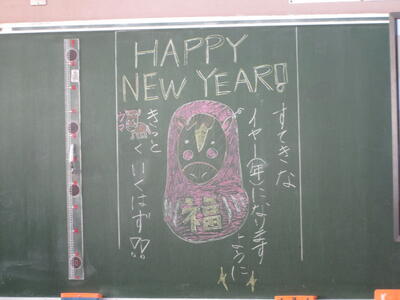 HAPPY
NEW YEAR!
すてきな
イヤー(年)になります
ように
福
きっと
くいくはず!!